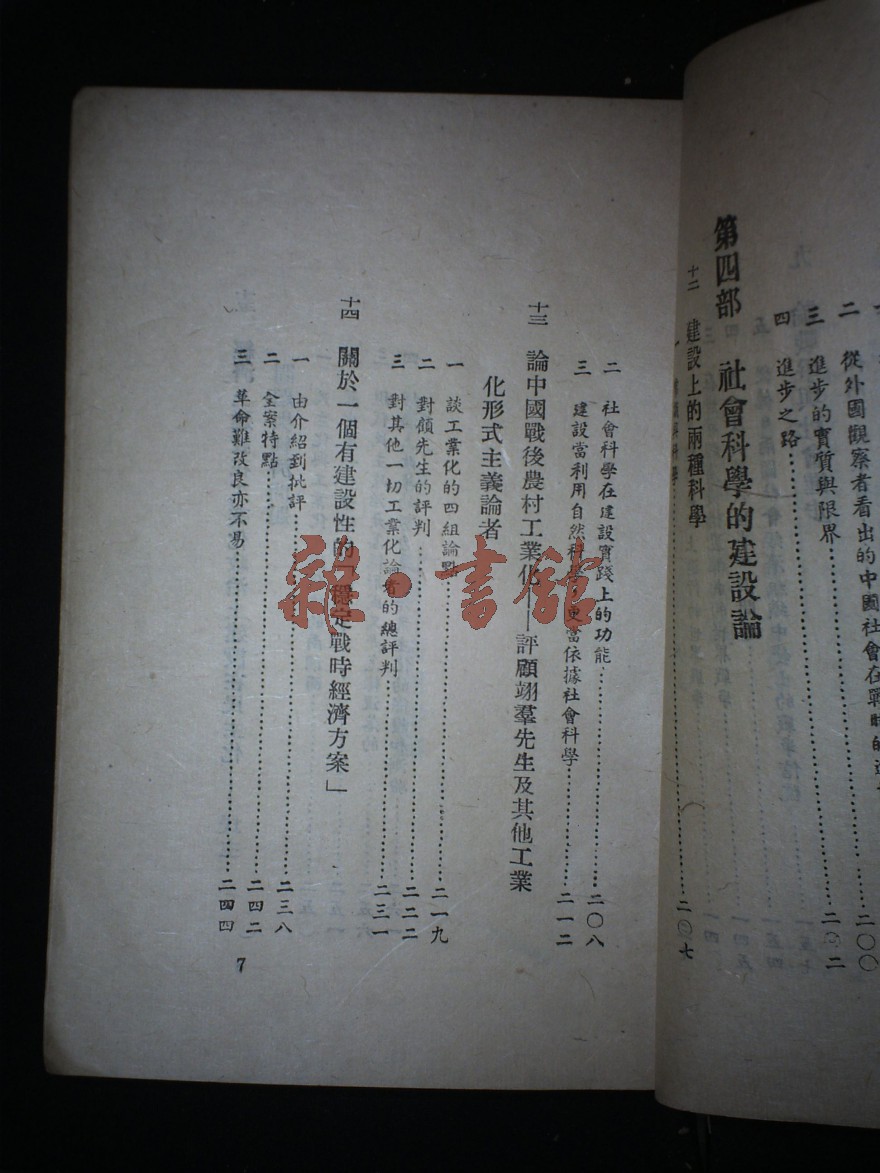 二 從外國觀察者看出的中國社會在戰時的進 二〇〇
三 進步的實質與限界 二〇二
四 進步之路
第四部 社會科學的建設論
十二 建設上的兩種科學
一 二〇七
二 社會科學在建設實踐上的功能 二〇八
三 建設當利用自然科學更當依據社會科學 二一二
十三 論中國戰後農村工業化——評顧翊羣先生及其他工業
化形式主義論者
一 談工業化的四組論點 二一九
二 對顏先生的評判 二二二
三 對其他一切工業化論者的總評判 二三一
十四 關於一個有建設性的「穩定戰時經濟方案」
一 由介紹到批評 二三八
二 全案特點 二四二
三 革命難改良亦不易 二四四
7
雜·書館